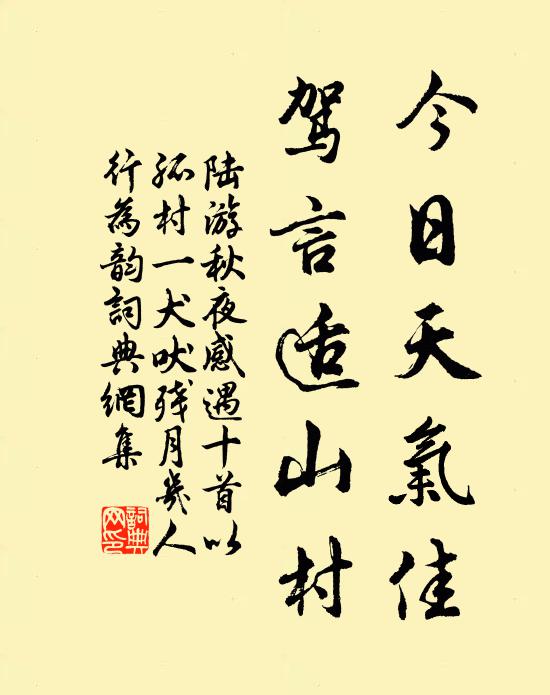 今日天氣佳
驾言适山村
陆游秋夜感遇十首以
孤村一犬吠残月幾人
行為韵詞典網集
詞典
网印